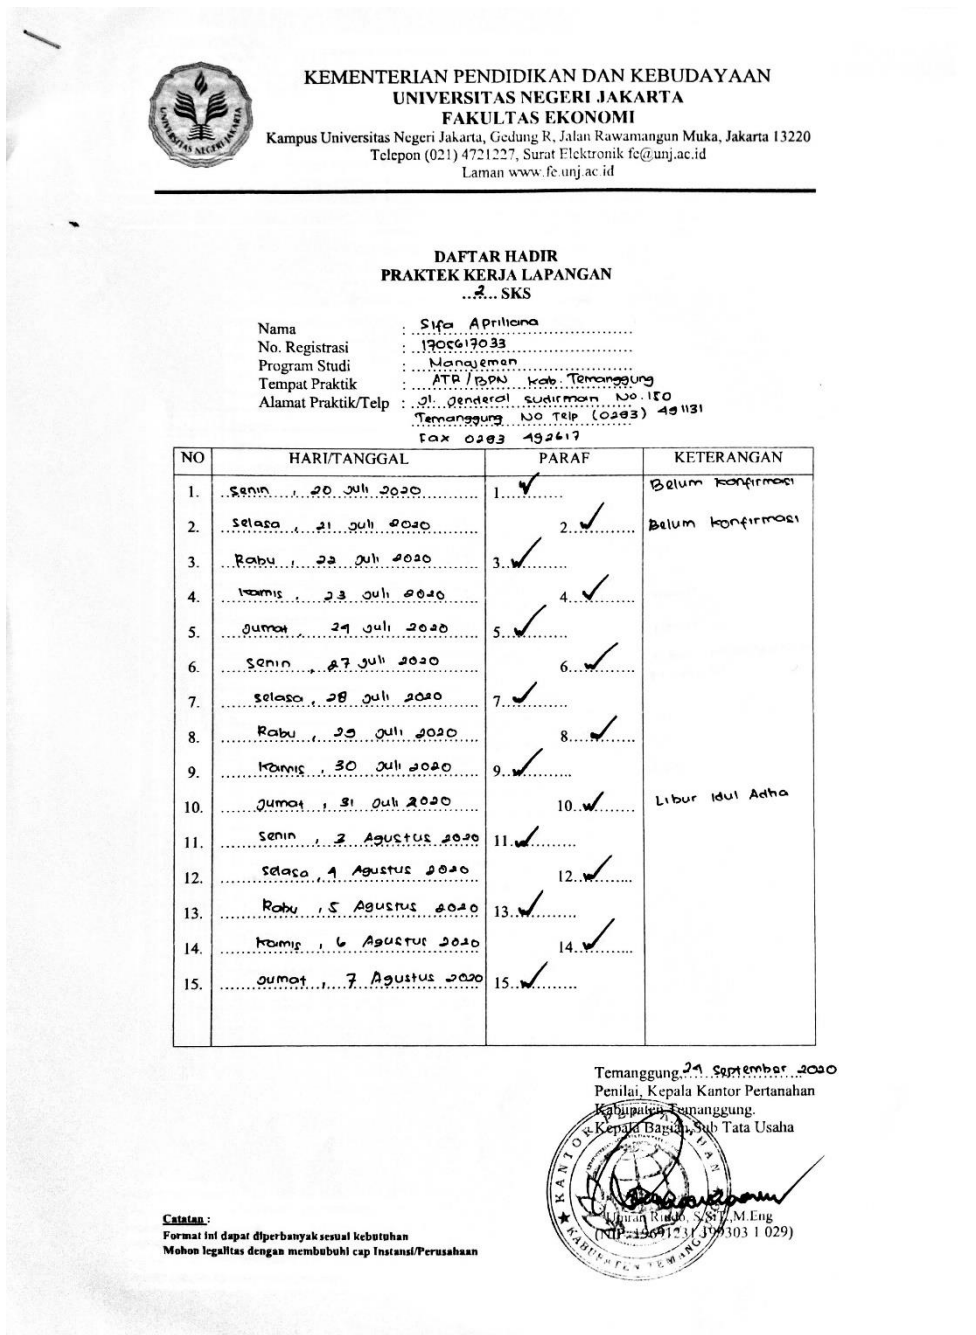 KEMENTERIAN PENDIDIKAN DAN KEBUDAYAAN
UNIVERSITAS NEGERI JAKARTA
FAKULTAS EKONOMI
Kampus Universitas Negeri Jakarta, Gedung R, Jalan Rawamangun Muka, Jakarta 13220
Telepon (021) 4721227, Surat Elektronik fe@unj.ac.id
Laman www.fe.unj.ac.id
UNIVERSITAS NEGERI JAKARTA
DAFTAR HADIR
PRAKTEK KERJA LAPANGAN
...2... SKS
Nama : Sifa Apriliana
No. Registrasi : 1705617033
Program Studi : Manajemen
Tempat Praktik : ATR/BPN Kab. Temanggung
Alamat Praktik/Telp : Jl. Jenderal Sudirman No. 150
Temanggung No Telp (0293) 491131
Fax 0293 492617
NO HARI/TANGGAL PARAF KETERANGAN
1. Senin, 20 Juli 2020 1. ✓ Belum konfirmasi
2. Selasa, 21 Juli 2020 2. ✓ Belum konfirmasi
3. Rabu, 22 Juli 2020 3. ✓
4. Kamis, 23 Juli 2020 4. ✓
5. Jumat, 24 Juli 2020 5. ✓
6. Senin, 27 Juli 2020 6. ✓
7. Selasa, 28 Juli 2020 7. ✓
8. Rabu, 29 Juli 2020 8. ✓
9. Kamis, 30 Juli 2020 9. ✓
10. Jumat, 31 Juli 2020 10. ✓ Libur Idul Adha
11. Senin, 3 Agustus 2020 11. ✓
12. Selasa, 4 Agustus 2020 12. ✓
13. Rabu, 5 Agustus 2020 13. ✓
14. Kamis, 6 Agustus 2020 14. ✓
15. Jumat, 7 Agustus 2020 15. ✓
Temanggung, 24 September 2020
Penilai, Kepala Kantor Pertanahan
Kabupaten Temanggung.
Kepala Bagian Sub Tata Usaha
KANTOR PERTANAHAN
KABUPATEN TEMANGGUNG
S.SiT.,M.Eng
(NIP. 19691231 199303 1 029)
Catatan :
Format ini dapat diperbanyak sesuai kebutuhan
Mohon legalitas dengan membubuhi cap Instansi/Perusahaan